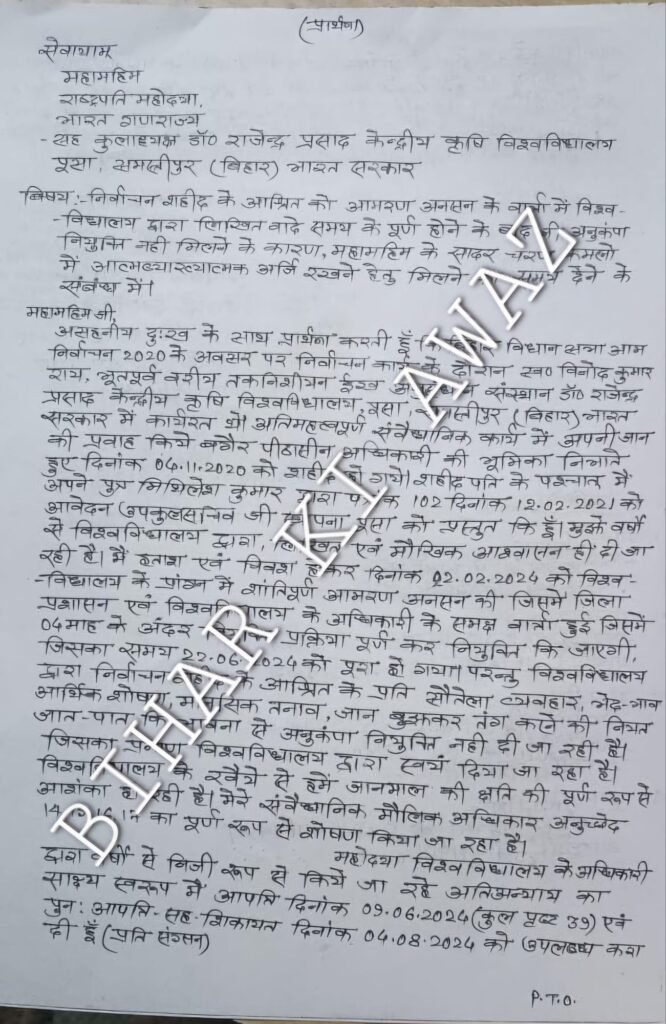 (प्रार्थना)
सेवायाम्
महामहिम
राष्ट्रपति महोदया,
भारत गणराज्य
-सह कुलाध्यक्ष डॉ० राजेन्द्र प्रसाद केन्द्रीय कृषि विश्वविद्यालय
पूसा, समस्तीपुर (बिहार) भारत सरकार
विषय:- निर्वाचन शहीद के आश्रित को आमरण अनसन के वार्ता में विश्व-
-विद्यालय द्वारा लिखित वादे समय के पूर्ण होने के बाद भी अनुकंपा
नियुक्ति नही मिलने के कारण, महामहिम के सादर चरण कमलो
में आत्मव्याख्यात्मक अर्जि रखने हेतु मिलने समय देने के
संबंध में।
महामहिम जी,
असहनीय दुःख के साथ प्रार्थना करती हूँ कि बिहार विधान सभा आम
निर्वाचन 2020 के अवसर पर निर्वाचन कार्य के दौरान स्व० विनोद कुमार
राय, भूतपूर्व वरीय तकनिशीयन ईख अनुसंधान संस्थान डॉ० राजेन्द्र
प्रसाद केन्द्रीय कृषि विश्वविद्यालय, पूसा, समस्तीपुर (बिहार) भारत
सरकार में कार्यरत थे। अतिमहत्वपूर्ण संवैधानिक कार्य में अपनी जान
की प्रवाह किये बगैर पीठासीन अधिकारी की भूमिका निभाते
हुए दिनांक 04.11.2020 को शहीद हो गये। शहीद पति के पश्चात मैं
अपने पुत्र मिथिलेश कुमार द्वारा पत्रांक 102 दिनांक 12.02.2021 को
आवेदन (उपकुलसचिव जी स्थापना पूसा को प्रस्तुत कि हूँ। मुझे वर्षो
से विश्वविद्यालय द्वारा, लिखित एवं मौखिक आश्वासन ही दी जा
रही है। मैं हताश एवं विवश होकर दिनांक 02.02.2024 को विश्व-
-विद्यालय के प्रांगन में शांतिपूर्ण आमरण अनसन की जिसमें जिला
प्रशासन एवं विश्वविद्यालय के अधिकारी के समक्ष वार्ता हुई जिसमें
04 माह के अंदर प्रक्रिया पूर्ण कर नियुक्ति कि जाएगी,
जिसका समय 22.06.2024 को पूरा हो गया। परन्तु विश्वविद्यालय
द्वारा निर्वाचन शहीद के आश्रित के प्रति सौतेला व्यवहार, भेद-भाव
आर्थिक शोषण, मानसिक तनाव, जान बुझकर तंग करने की नियत
जात-पात कि भावना से अनुकंपा नियुक्ति नही दी जा रही है।
जिसका प्रमाण विश्वविद्यालय द्वारा स्वयं दिया जा रहा है।
विश्वविद्यालय के रवैये से हमें जानमाल की क्षति की पूर्ण रूप से
आशंका हो रही है। मेरे संवैधानिक मौलिक अधिकार अनुच्छेद
14, 16, का पूर्ण रूप से शोषण किया जा रहा है।
महोदया विश्वविद्यालय के अधिकारी
द्वारा वर्षो से निजी रूप से किये जा रहे अतिअन्याय का
साक्ष्य स्वरूप में आपत्ति दिनांक 09.06.2024 (कुल पृष्ट 39) एवं
पुन: आपत्ति-सह-शिकायत दिनांक 04.08.2024 को उपलब्ध करा
दी हूँ (प्रति संग्सन)
P.T.O.
BIHAR KI AWAZ